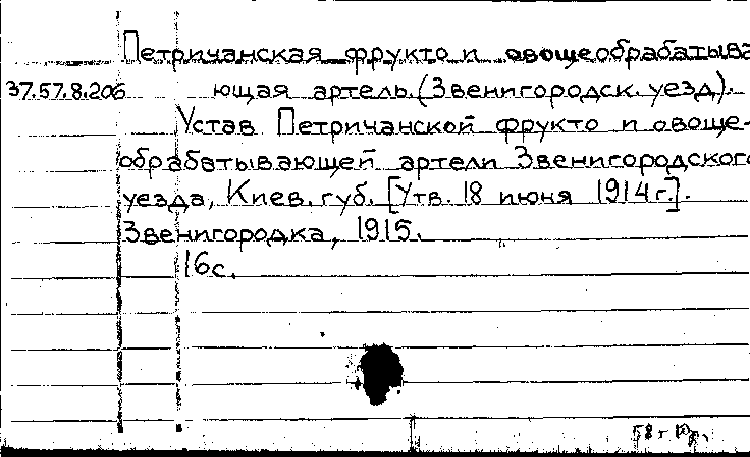 Петричанская фрукто и овощеобрабатыва
37.57.8.206 ющая артель. (Звенигородск. уезд).
Устав Петричанской фрукто и овоще-
обрабатывающей артели Звенигородского
уезда, Киев. губ. [Утв. 18 июня 1914 г.].
Звенигородка, 1915.
16с.
58 г.